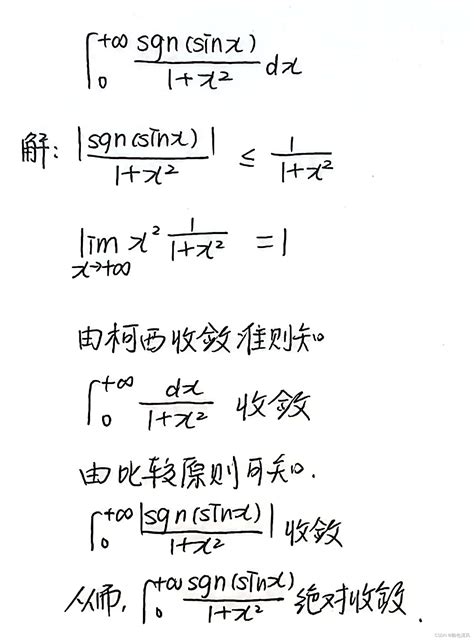 ∫₀^{+∞} sgn(sinx)/(1+x²) dx
解: |sgn(sinx)|/(1+x²) ≤ 1/(1+x²)
lim_{x→+∞} x² 1/(1+x²) = 1
由柯西收敛准则知
∫₀^{+∞} dx/(1+x²) 收敛
由比较原则可知.
∫₀^{+∞} |sgn(sinx)/(1+x²)| 收敛
从而, ∫₀^{+∞} sgn(sinx)/(1+x²) 绝对收敛.